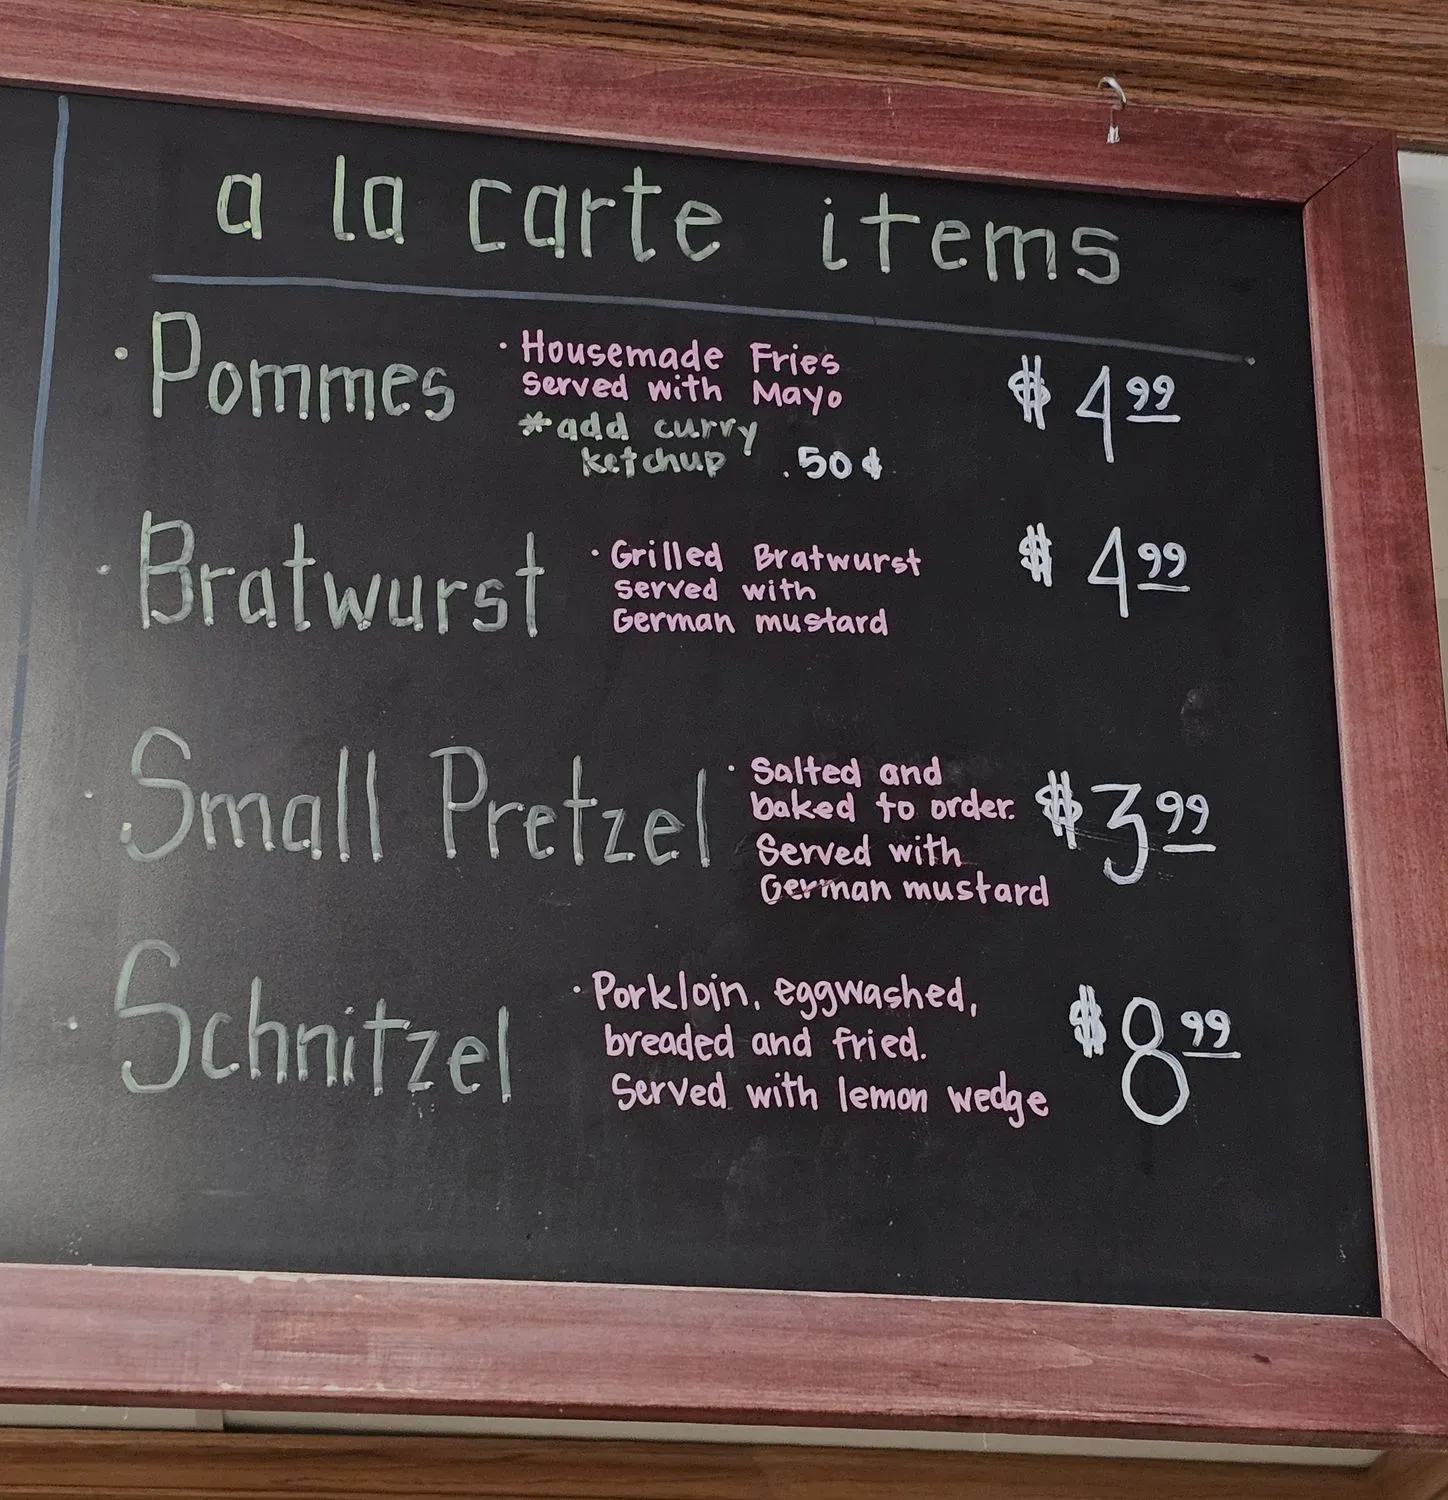 a la carte items
· Pommes · Housemade Fries $ 4.99
served with Mayo
*add curry
ketchup .50¢
· Bratwurst · Grilled Bratwurst $ 4.99
served with
German mustard
· Small Pretzel · Salted and $3.99
baked to order.
Served with
German mustard
· Schnitzel · Porkloin, eggwashed, $8.99
breaded and fried.
Served with lemon wedge